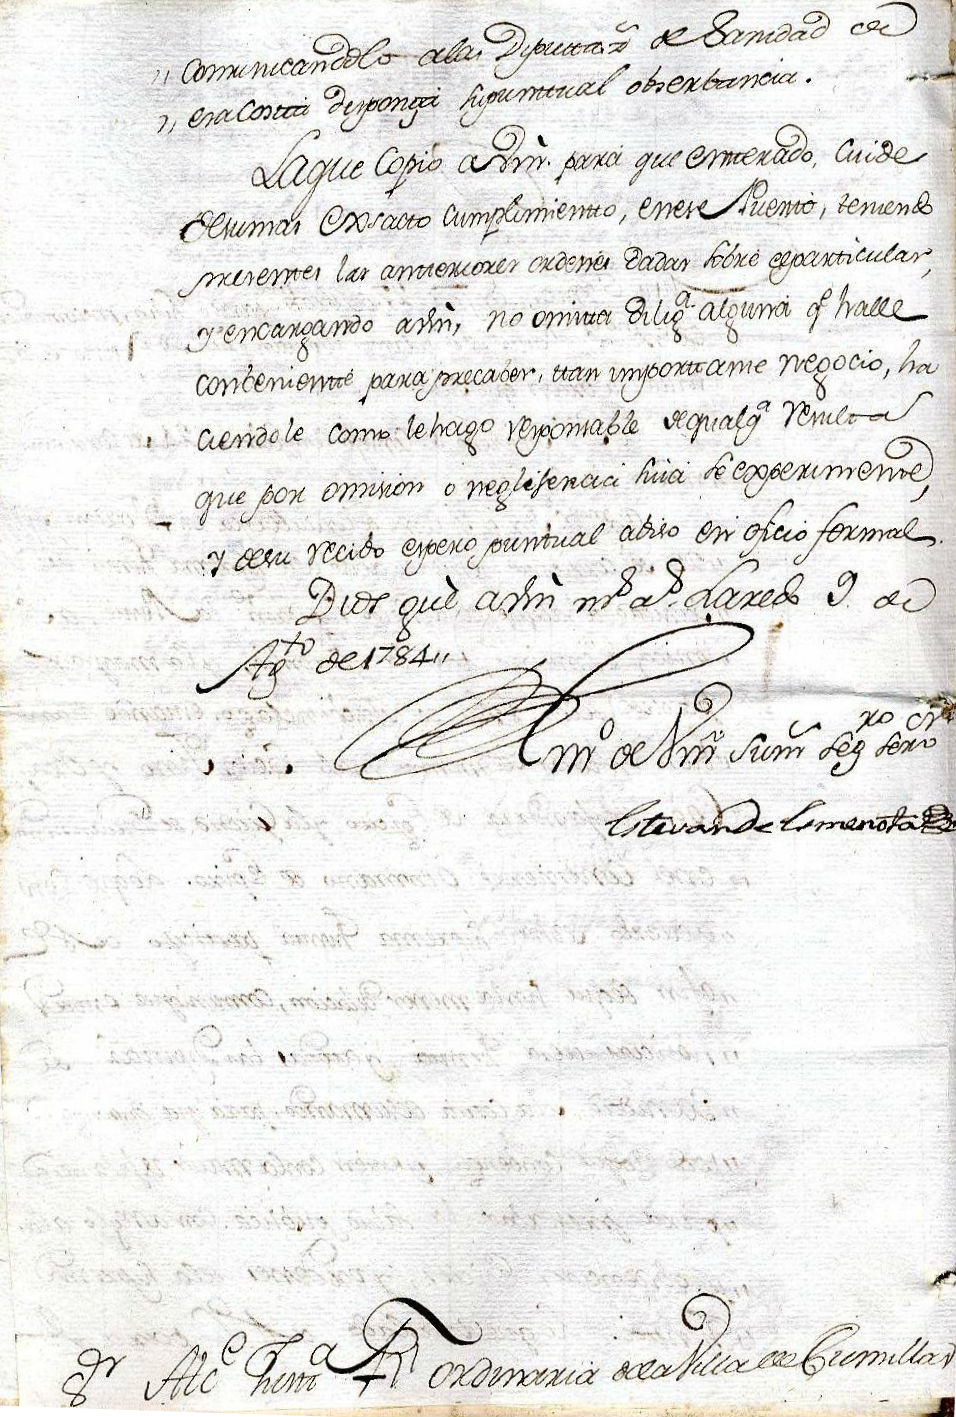 ,, comunicandolo alas Diputaz.s de Sanidad de
,, esa Costa disponga supuntual obserbancia.
Laque Copio a Vm. para que enterado, cuide
desumas exsacto cumplimiento, enese Puerto, teniendo
presentes las anteriores ordenes dadas sobre elparticular,
y encargando a Vm, no omita dilig.a alguna q.e halle
conbeniente para precaber, tan importante negocio, ha
ciendole como lehago responsable de qualq.a resulta
que por omision o neglisencia suia se experimente,
y desu recibo espero puntual abiso en oficio formal.
Dios gue a Vm m.s a.s Laredo 9 de
Ag.to de 1784,,
m.o de Vm su m.r seg.ro serv.r
Estevan de
S.r Alc.e Just.a R.l ordinaria dela Villa de Comillas